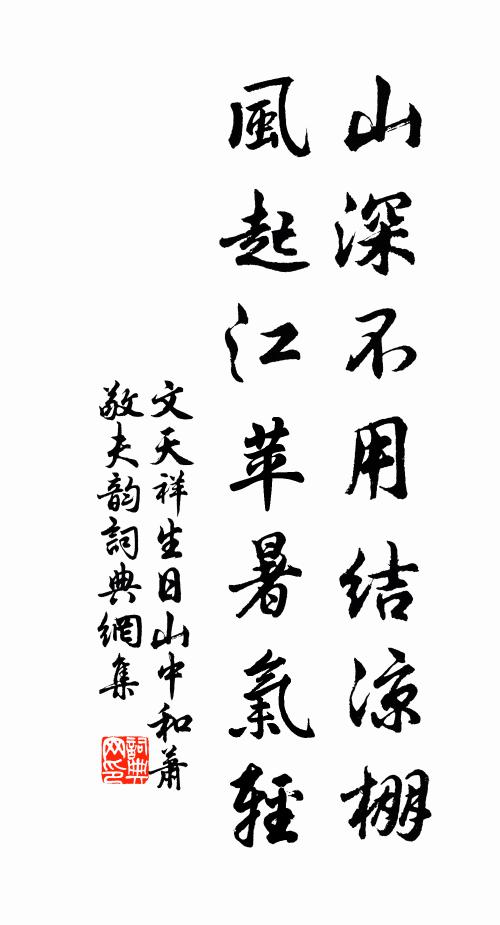 山深不用結凉棚
風起江苹暑氣輕
文天祥生日山中和蕭
敬夫韵詞典網集
詞典
网印